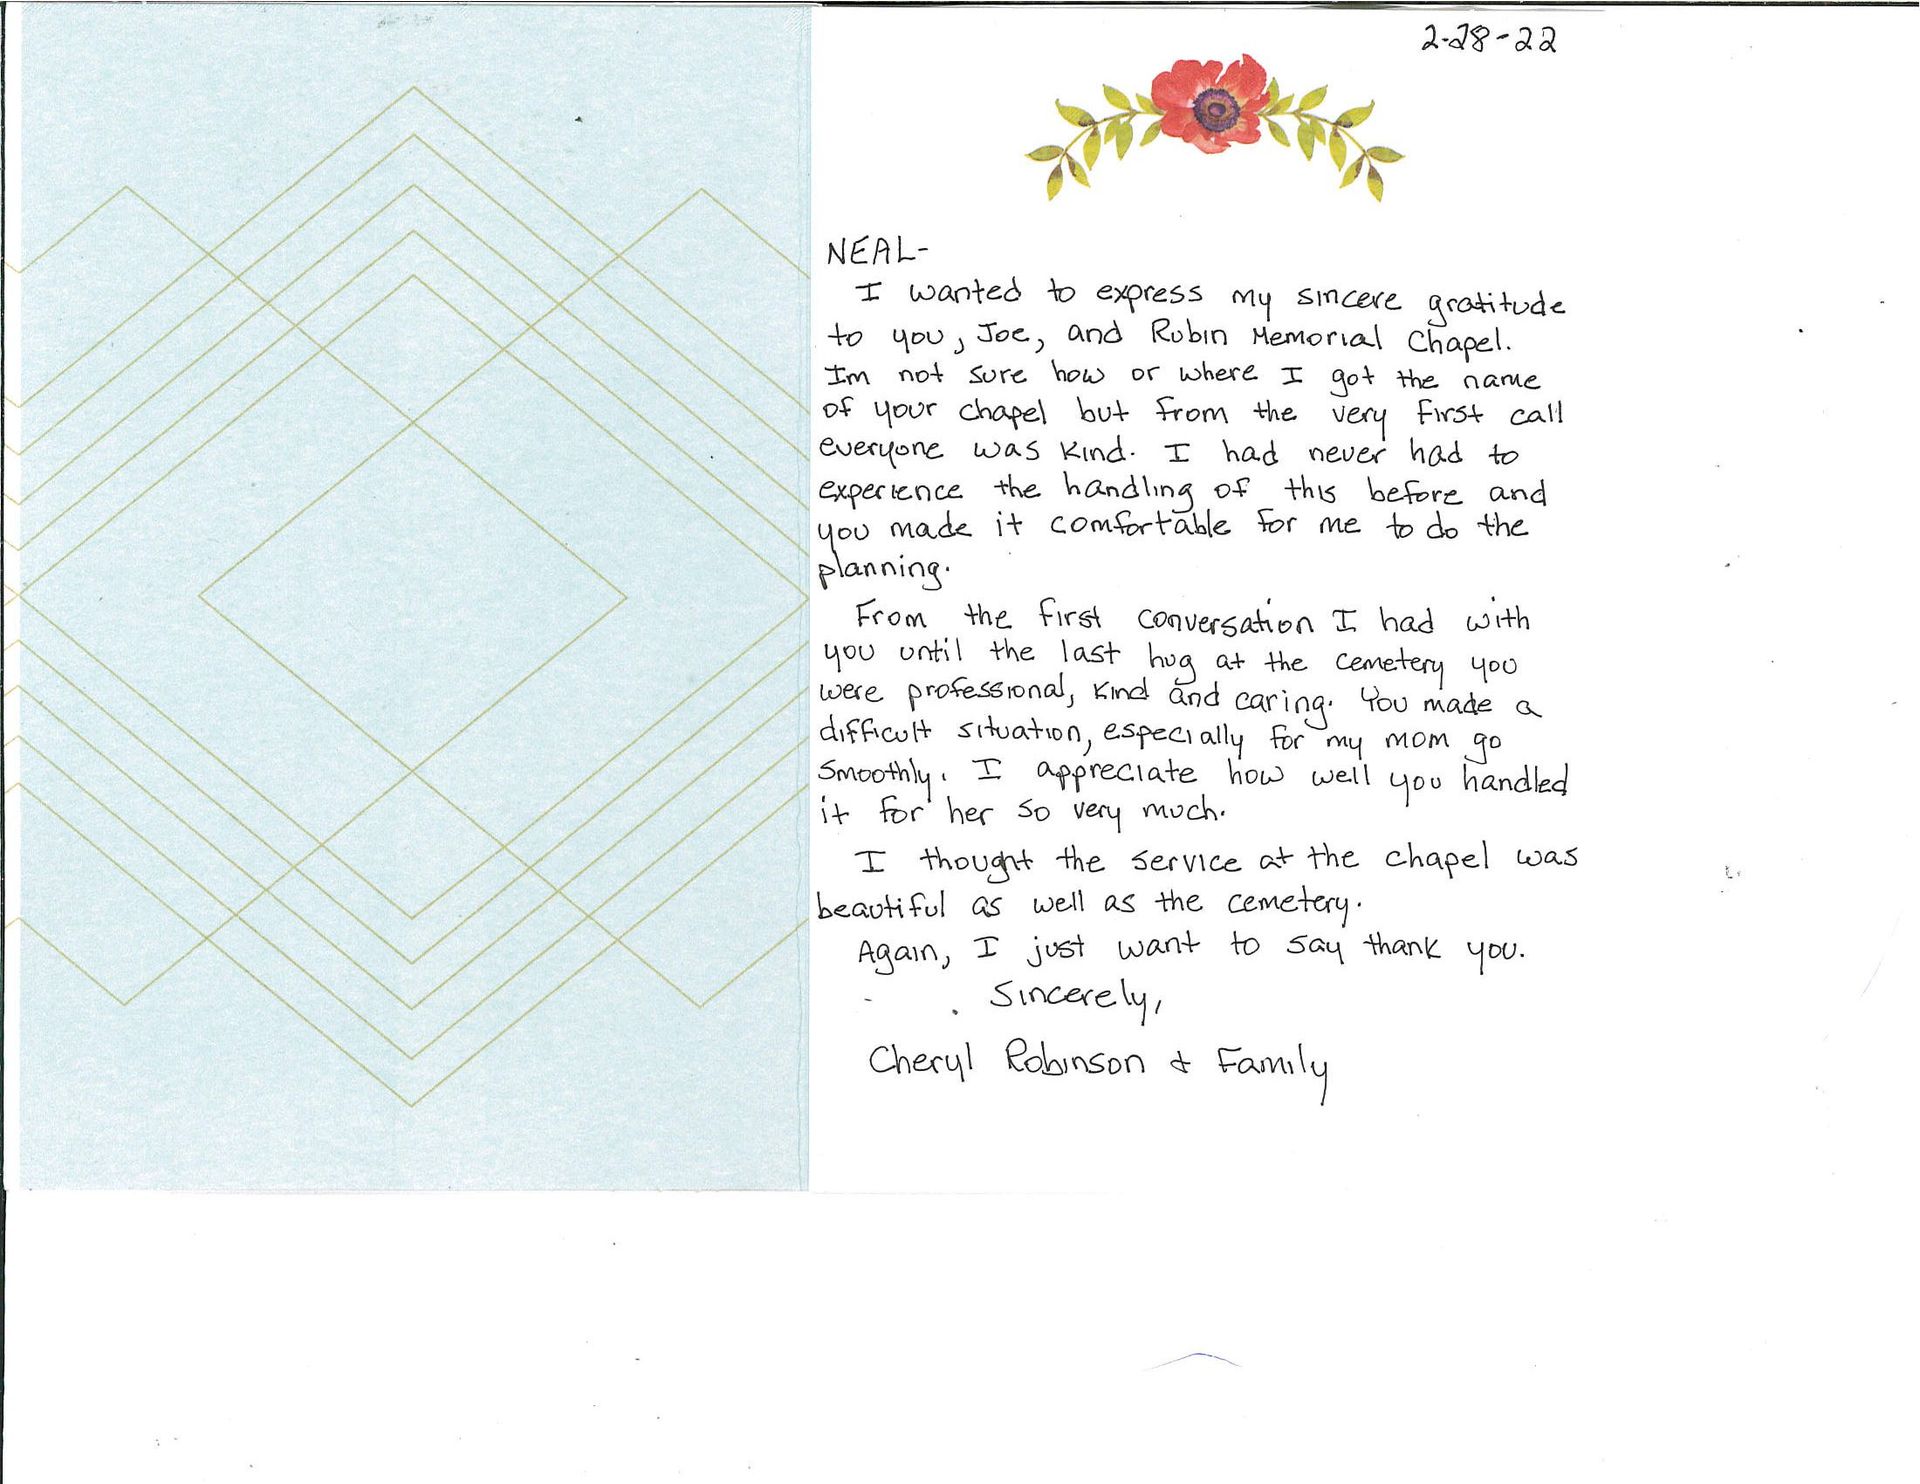 2-28-22
NEAL-
I wanted to express my sincere gratitude
to you, Joe, and Rubin Memorial Chapel.
Im not sure how or where I got the name
of your chapel but from the very first call
everyone was kind. I had never had to
experience the handling of this before and
you made it comfortable for me to do the
planning.
From the first conversation I had with
you until the last hug at the cemetery you
were professional, kind and caring. You made a
difficult situation, especially for my mom go
smoothly. I appreciate how well you handled
it for her so very much.
I thought the service at the chapel was
beautiful as well as the cemetery.
Again, I just want to say thank you.
Sincerely,
Cheryl Robinson & Family